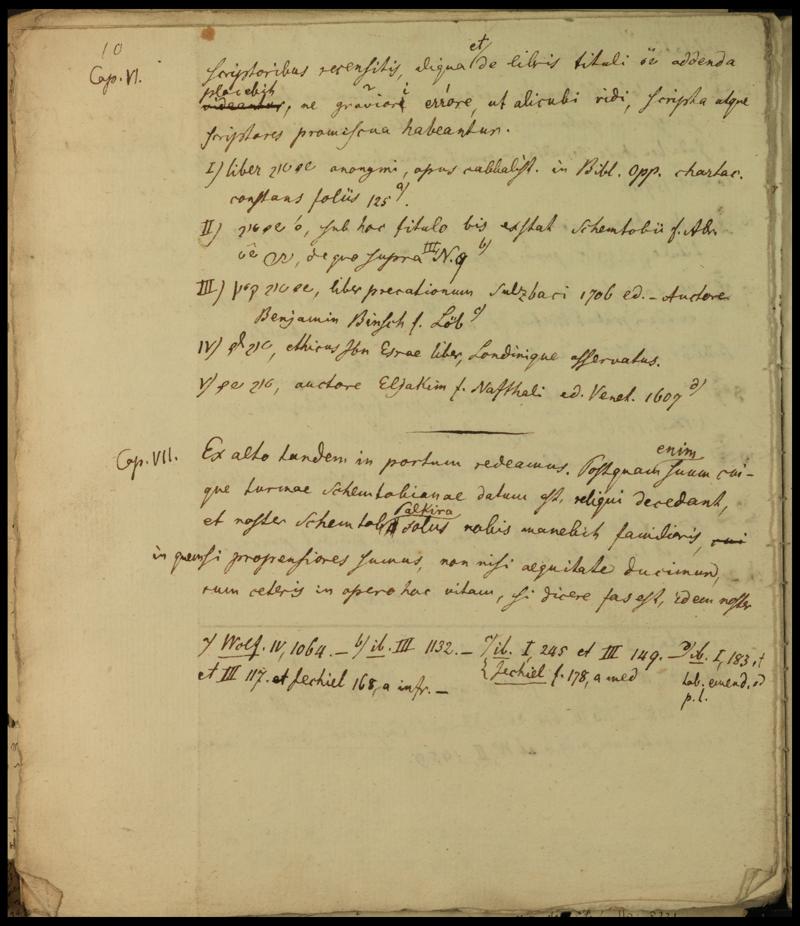 10
Cap. VI.
scriptoribus recensitis, aliqua et de libris tituli addenda
placebit
videantur, ne graviori errore, ut alicubi vidi, scripta atque
scriptores promiscua habeantur.
I) liber anonymi, opus cabbalist. in Bibl. Opp. chartac.
constans foliis 125 a).
II) sub hoc titulo bis exstat Schemtobii f. Abr.
de quo supra III N. 9 b)
III) liber precationum Sulzbaci 1706 ed. – Auctore
Benjamin Binsch f. Löb c)
IV) ethicus Ibn Esrae liber, Londinique asservatus.
V) auctore Eljakim f. Nafthali ed. Venet. 1609 d)
Cap. VII. Ex alto tandem in portum redeamus. Postquam enim suum cui-
que turmae Schemtobianae datum est, reliqui decedant,
Palkira
et noster Schemtob solus nobis manebit familiaris, cui
in quem si propensiores sumus, non nisi aequitate ducimur,
cum ceteris in opere hoc vitam, si dicere fas est, idem noster
a) Wolf. IV, 1064. – b) ib. III 1132. – c) ib. I, 245 et III 149. – d) ib. I, 183 et
et III 117. et Jechiel 168, a infr. – Jechiel f. 178, a med tab. emend. ad
p. l.